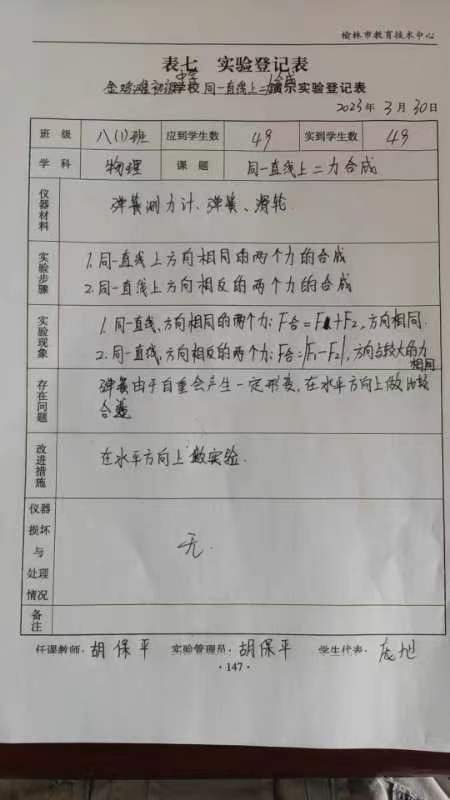 榆林市教育技术中心
表七 实验登记表
中学 合成
学校同一直线上二力演示实验登记表
2023年3月30日
班级 八(1)班 应到学生数 49 实到学生数 49
学科 物理 课题 同一直线上二力合成
仪器材料 弹簧测力计、弹簧、滑轮
实验步骤
1.同一直线上方向相同的两个力的合成
2.同一直线上方向相反的两个力的合成
实验现象
1.同一直线,方向相同的两个力:F合=F1+F2,方向相同.
2.同一直线,方向相反的两个力:F合=|F1-F2|,方向与较大的力
相同
存在问题
弹簧由于自重会产生一定形变,在水平方向上做比较
合适
改进措施
在水平方向上做实验.
仪器
损坏
与
处理
情况
无.
备注
任课教师:胡保平 实验管理员:胡保平 学生代表:
·147·